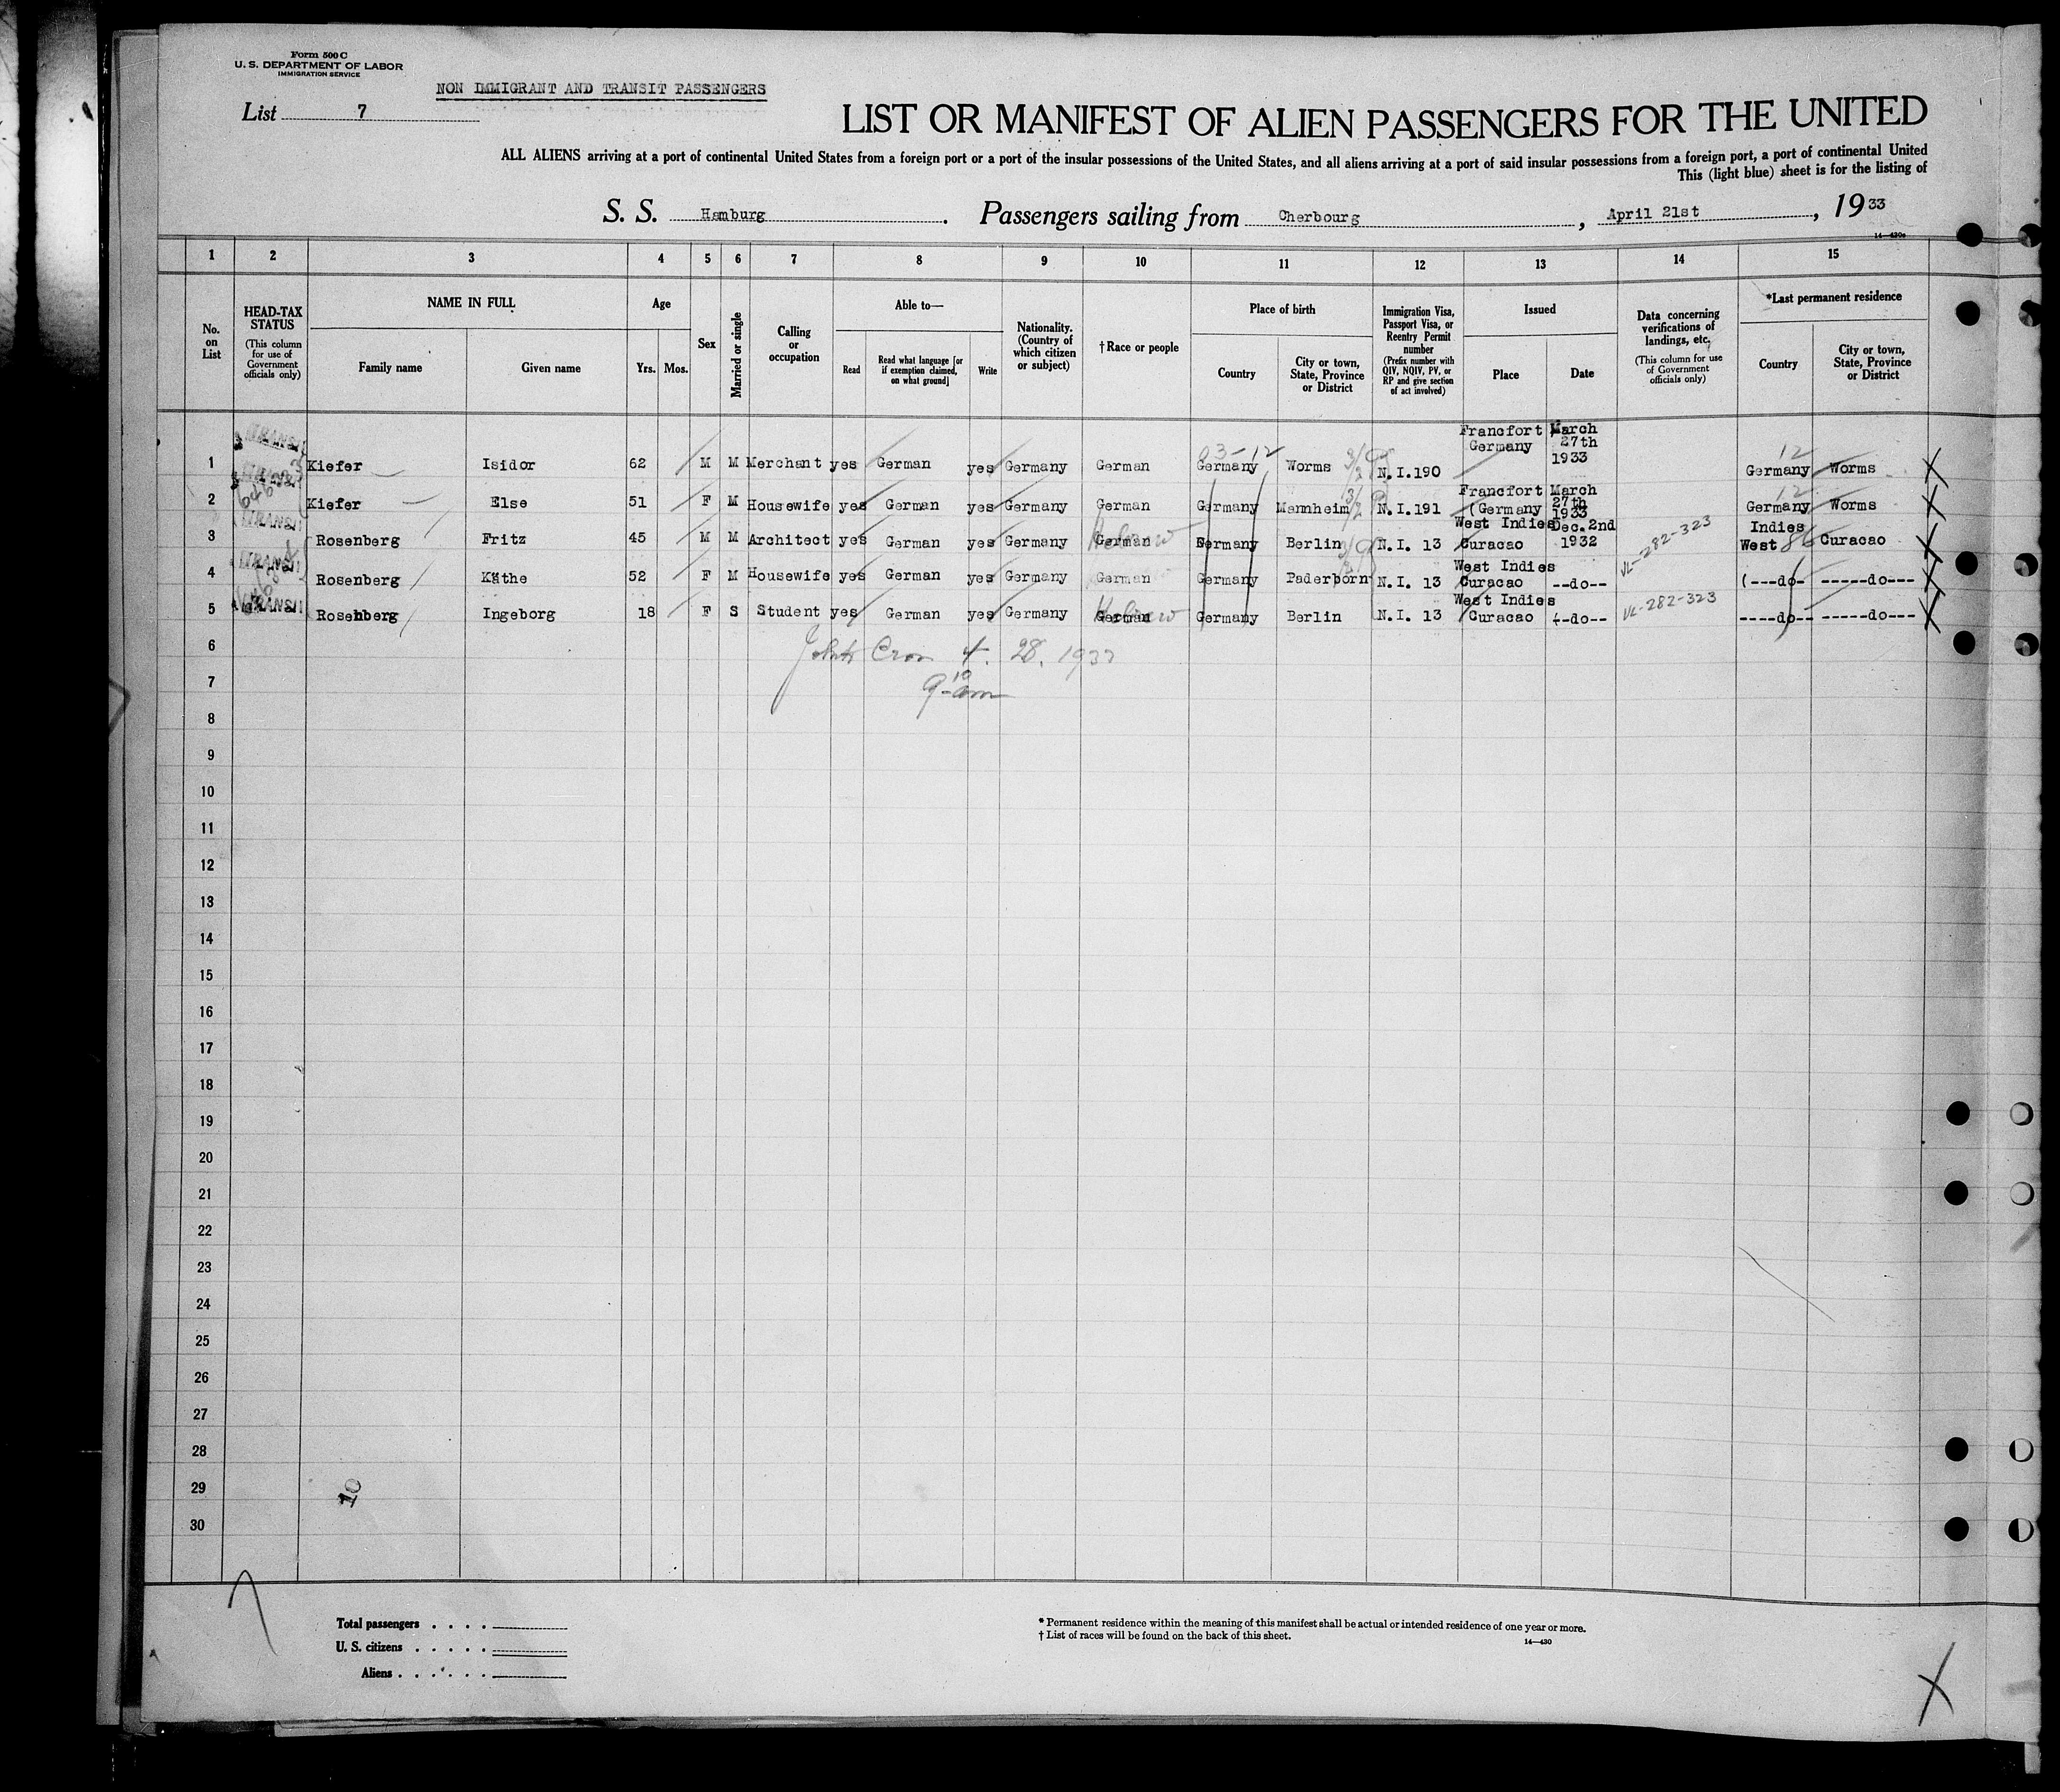 Form 500 C
U. S. DEPARTMENT OF LABOR
IMMIGRATION SERVICE
NON IMMIGRANT AND TRANSIT PASSENGERS
List 7
LIST OR MANIFEST OF ALIEN PASSENGERS FOR THE UNITED
ALL ALIENS arriving at a port of continental United States from a foreign port or a port of the insular possessions of the United States, and all aliens arriving at a port of said insular possessions from a foreign port, a port of continental United
This (light blue) sheet is for the listing of
S. S. Hamburg. Passengers sailing from Cherbourg, April 21st, 1933
14—430a
1 2 3 4 5 6 7 8 9 10 11 12 13 14 15
No. on List
HEAD-TAX STATUS (This column for use of Government officials only)
NAME IN FULL
Family name Given name
Age
Yrs. Mos.
Sex
Married or single
Calling or occupation
Able to—
Read Read what language [or if exemption claimed, on what ground] Write
Nationality. (Country of which citizen or subject)
† Race or people
Place of birth
Country City or town, State, Province or District
Immigration Visa, Passport Visa, or Reentry Permit number (Prefix number with QIV, NQIV, PV, or RP and give section of act involved)
Issued
Place Date
Data concerning verifications of landings, etc. (This column for use of Government officials only)
*Last permanent residence
Country City or town, State, Province or District
03-12
12
1 TRANSIT Kiefer Isidor 62 M M Merchant yes German yes Germany German Germany Worms N.I.190 Francfort Germany March 27th 1933 Germany Worms
12
2 Kiefer Else 51 F M Housewife yes German yes Germany German Germany Mannheim N.I.191 Francfort (Germany March 27th 1933 Germany Worms
3 TRANSIT Rosenberg Fritz 45 M M Architect yes German yes Germany German Hebrew Germany Berlin N.I. 13 West Indies Curacao Dec. 2nd 1932 VL-282-323 Indies West 86 Curacao
4 Rosenberg Käthe 52 F M Housewife yes German yes Germany German Germany Paderborn N.I. 13 West Indies Curacao --do-- (---do- -----do---
5 TRANSIT Rosenberg Ingeborg 18 F S Student yes German yes Germany German Hebrew Germany Berlin N.I. 13 West Indies Curacao --do-- VL-282-323 ----do-- -----do---
6
4. 28. 1933
7
9 10 am
8
9
10
11
12
13
14
15
16
17
18
19
20
21
22
23
24
25
26
27
28
29
10
30
Total passengers
U. S. citizens
Aliens
* Permanent residence within the meaning of this manifest shall be actual or intended residence of one year or more.
† List of races will be found on the back of this sheet.
14—430